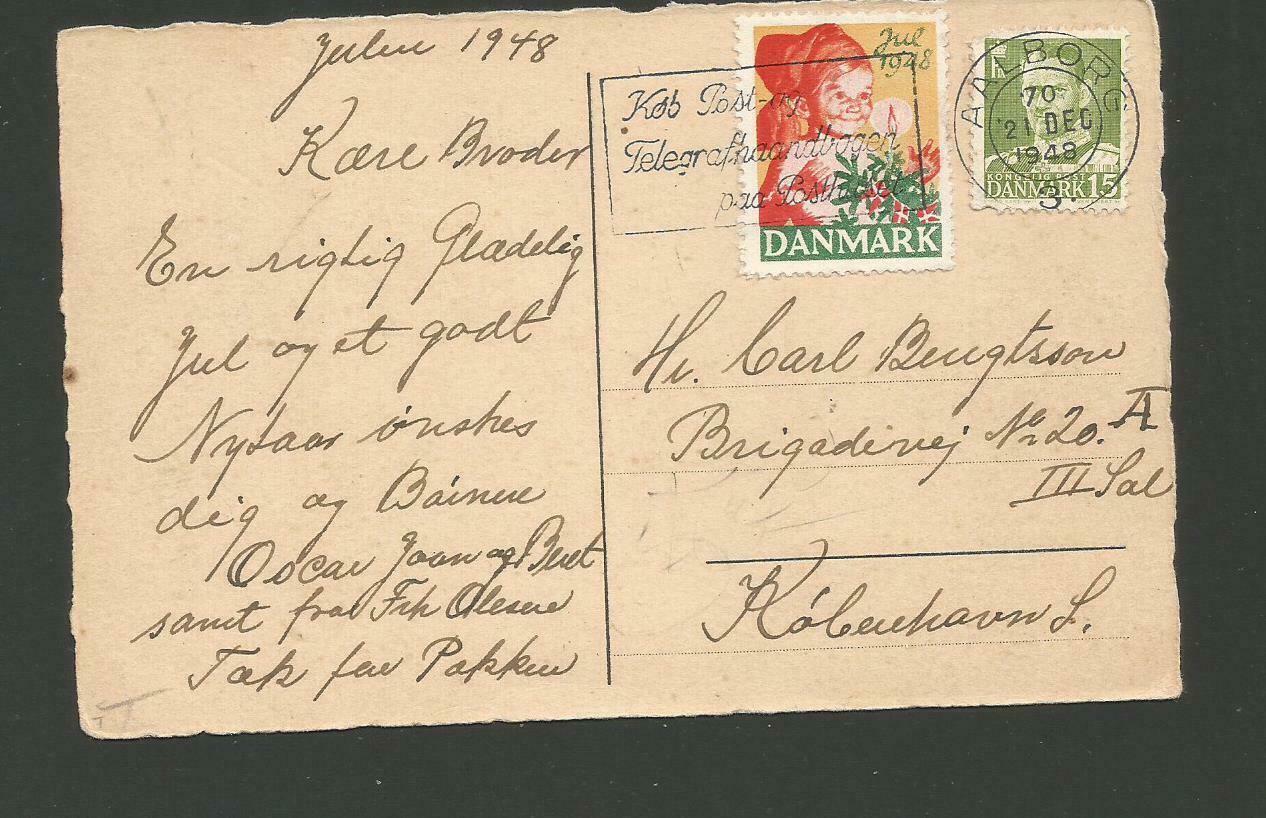 Julen 1948
Kære Broder
En rigtig Glædelig
Jul og et godt
Nytaar ønskes
dig og Børnene
Oscar og Beret
samt fra Frk Olesen
Tak for Pakken
Køb Post- og
Telegrafhaandbogen
paa Posthuset
Jul
1948
DANMARK
AALBORG
70
21 DEC
1948
3.
KONGELIG POST
DANMARK 15
Hr. Carl Bengtsson
Brigadevej No 20. A
III Sal
København S.